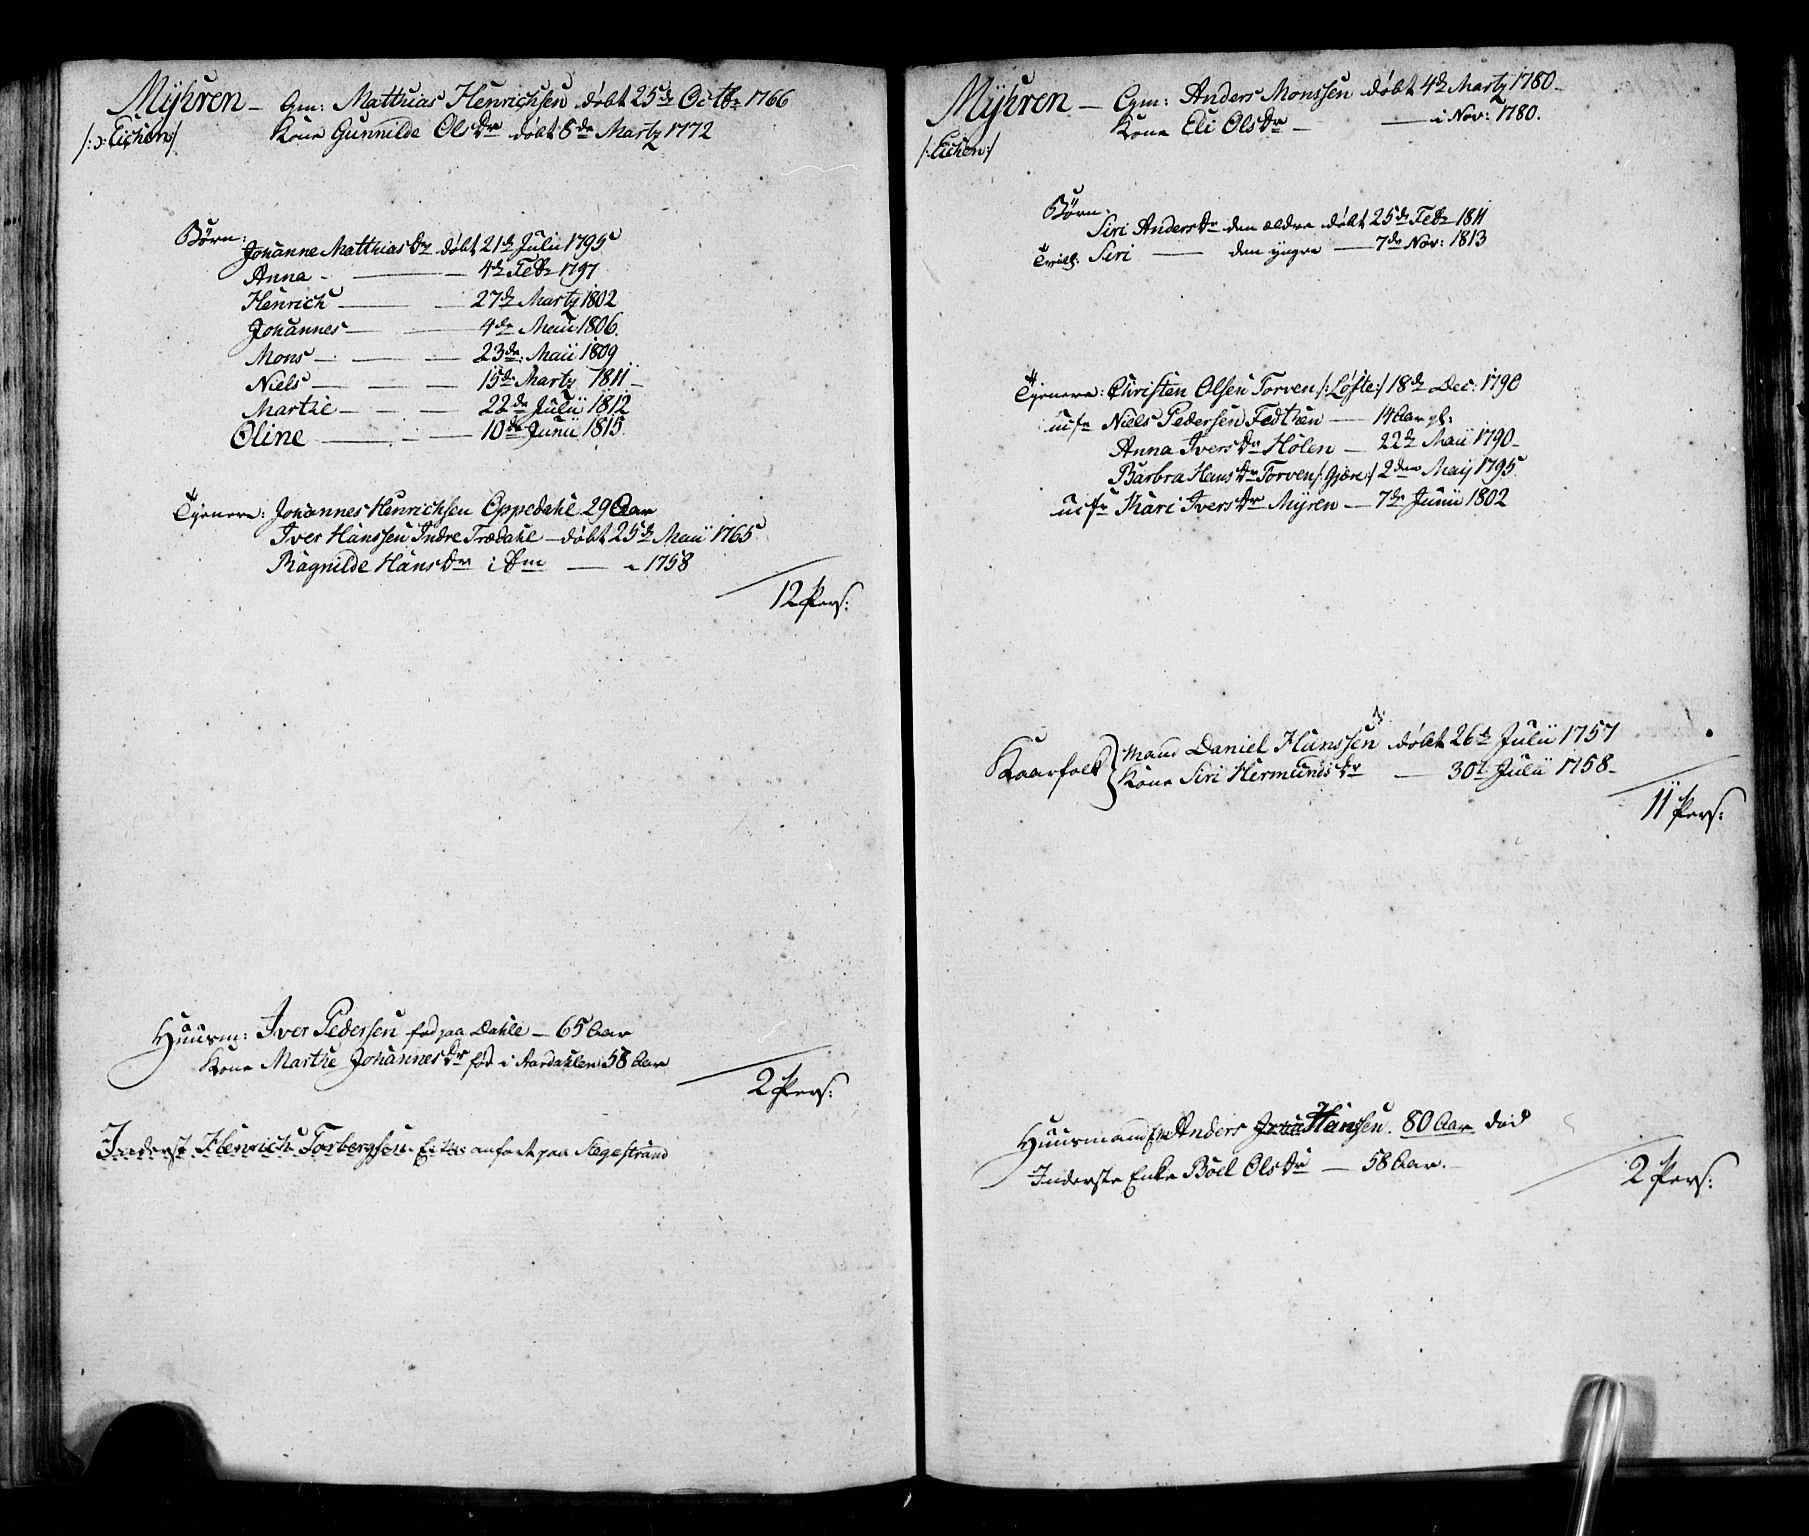 Myhren – Gm: Matthias Henrichsen døbt 25de Octbr 1766
/:ɔ: Eichen:/ Kone Gunnilde Olsdr døbt 8de Marty 1772
Børn:
Johanne Matthiasdr døbt 21de Julii 1795
Anna – — — 4de Febr 1797
Henrich — — 27de Marty 1802
Johannes — — 4de Maii 1806.
Mons — — — 23de: Maii 1809
Niels — — — 15de Marty 1811 –
Marthe — — — 22de Julii 1812
Oline — — — 10de Junii 1815.
Tjenere: Johannes Henrichsen Oppedahl 29 Aar
Iver Hanssen Indre Trædahl – døbt 25de Maii 1765
Ragnilde Hansdr i — 1758
12 Pers:
Huusm: Iver Pedersen fød paa Dahle – 65 Aar
Kone Marthe Johannesdr fød i Aardahlen 58 Aar
2 Pers:
Inderst Henrich Torbergsen. Er anført paa Stegestrand
Myhren – Gm: Anders Monssen døbt 4de Marty 1780 –
/:Eichen:/ Kone Eli Olsdr – — i Nov: 1780.
Børn:
Siri Andersdr den ældre døbt 25de Febr 1811
Tvill: Siri — den yngre — 7de Nov: 1813
Tjenere: Christen Olsen Torven /:Løfte:/ 18de Dec: 1790
Niels Pedersen Fedtæn — 14 Aar gl:
Anna Iversdr Holen – 22de Maii 1790 –
Barbra Hansdr Torven /:Gjøre:/ 2den Maij 1795
Kari Iversdr Myren – 7de Junii 1802
Kaarfolk Mand Daniel Hanssen døbt 26de Julii 1757
Kone Siri Hermundsdr — 30te Julii 1758 –
11 Pers:
Huusmand Anders Hansen. 80 Aar død
Inderste Enke Böel Olsdr — 58 Aar. –
2 Pers: